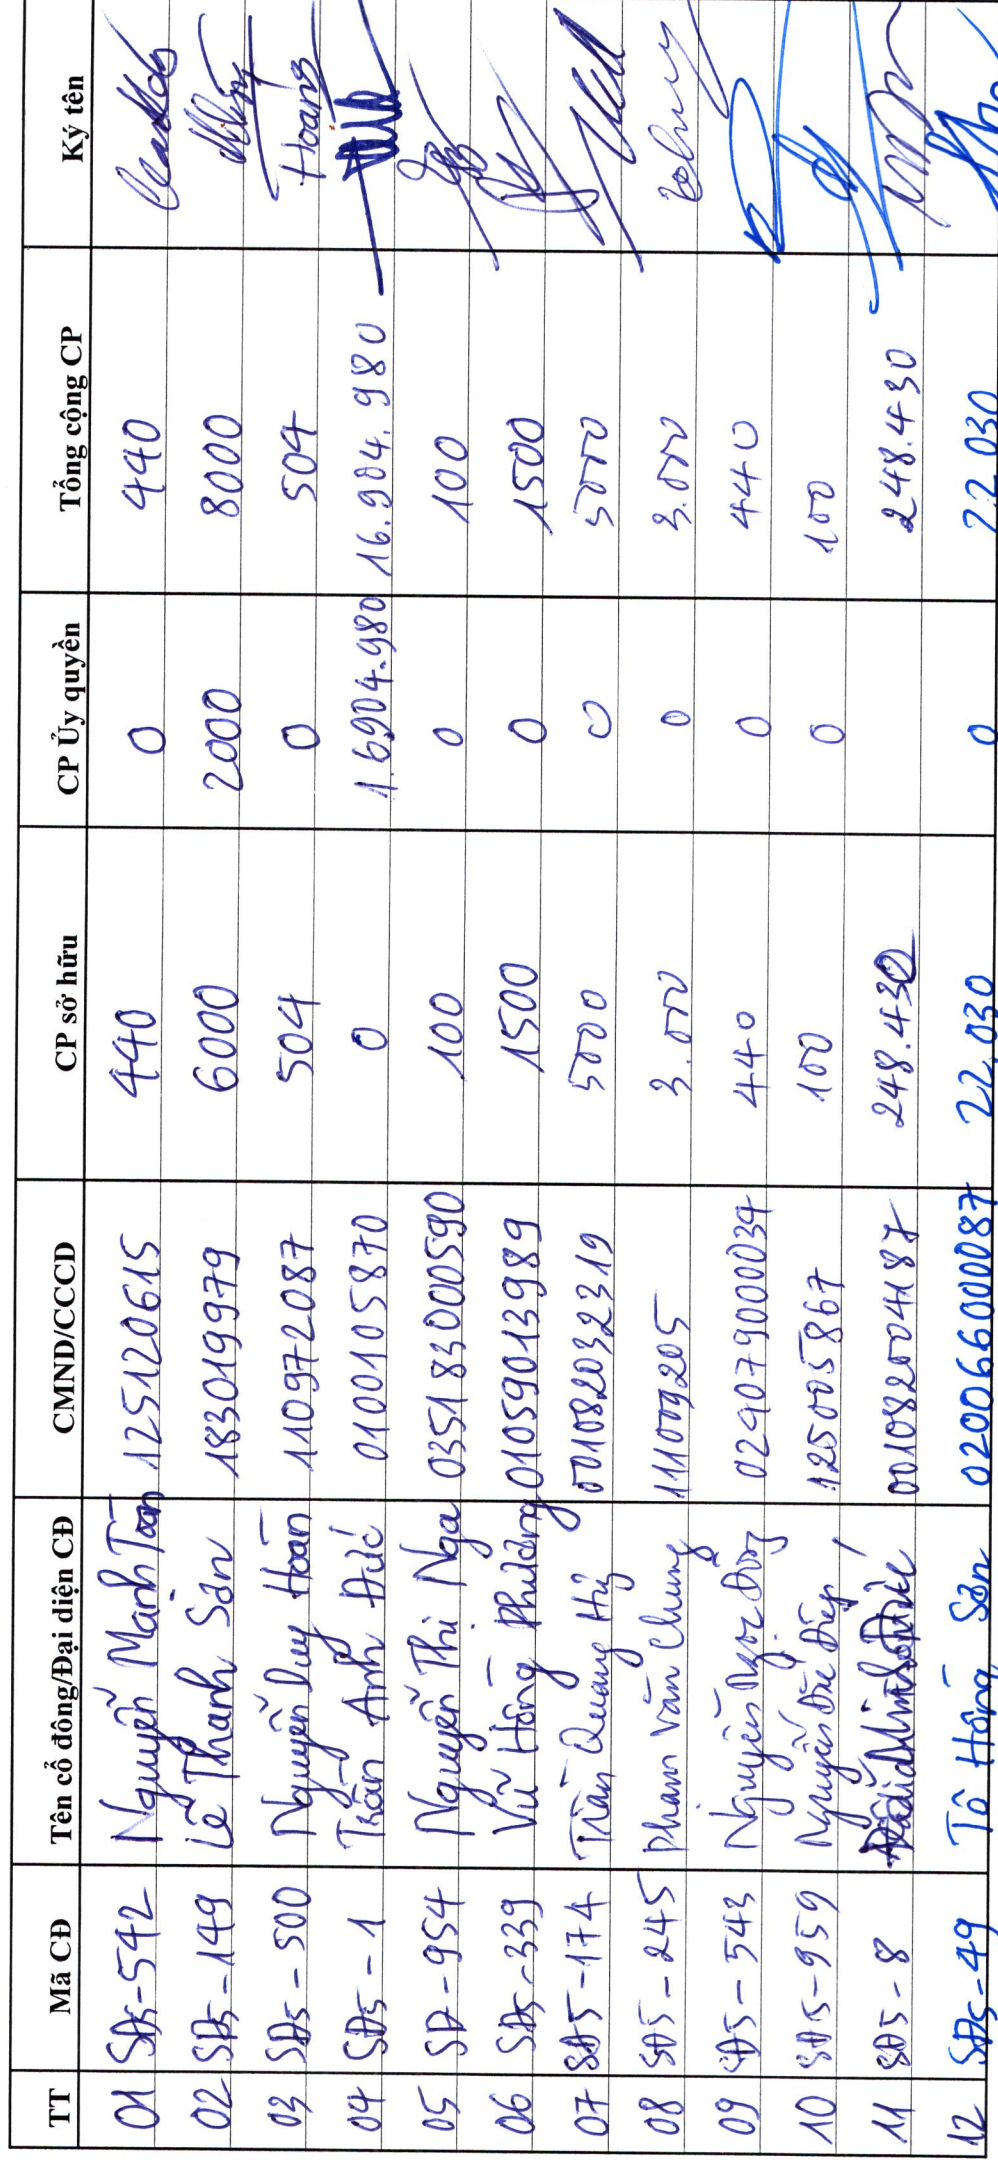 TT Mã CĐ Tên cổ đông/Đại diện CĐ CMND/CCCD CP sở hữu CP Ủy quyền Tổng cộng CP Ký tên
01 SĐ5-542 Nguyễn Mạnh Toàn 125120615 440 0 440
02 SĐ5-149 Lê Thanh Sơn 183019979 6000 2000 8000
03 SĐ5-500 Nguyễn Duy Hoàn 110972087 504 0 504 Hoàng
04 SĐ5-1 Trần Anh Đức 0100105870 0 16.904.980 16.904.980
05 SĐ-954 Nguyễn Thị Nga 035183000590 100 0 100
06 SĐ5-339 Vũ Hồng Phương 01059013989 1500 0 1500
07 SĐ5-174 Trần Quang Huy 001082032319 5000 0 5000
08 SĐ5-245 Phạm Văn Chung 111009205 3.000 0 3.000
09 SĐ5-543 Nguyễn Ngọc Đông 029079000034 440 0 440
10 SĐ5-959 Nguyễn Đức Điệp 125005867 100 0 100
11 SĐ5-8 001082004187 248.430 248.430
12 SĐ5-49 Tô Hồng Sơn 020066000087 22.030 0 22.030